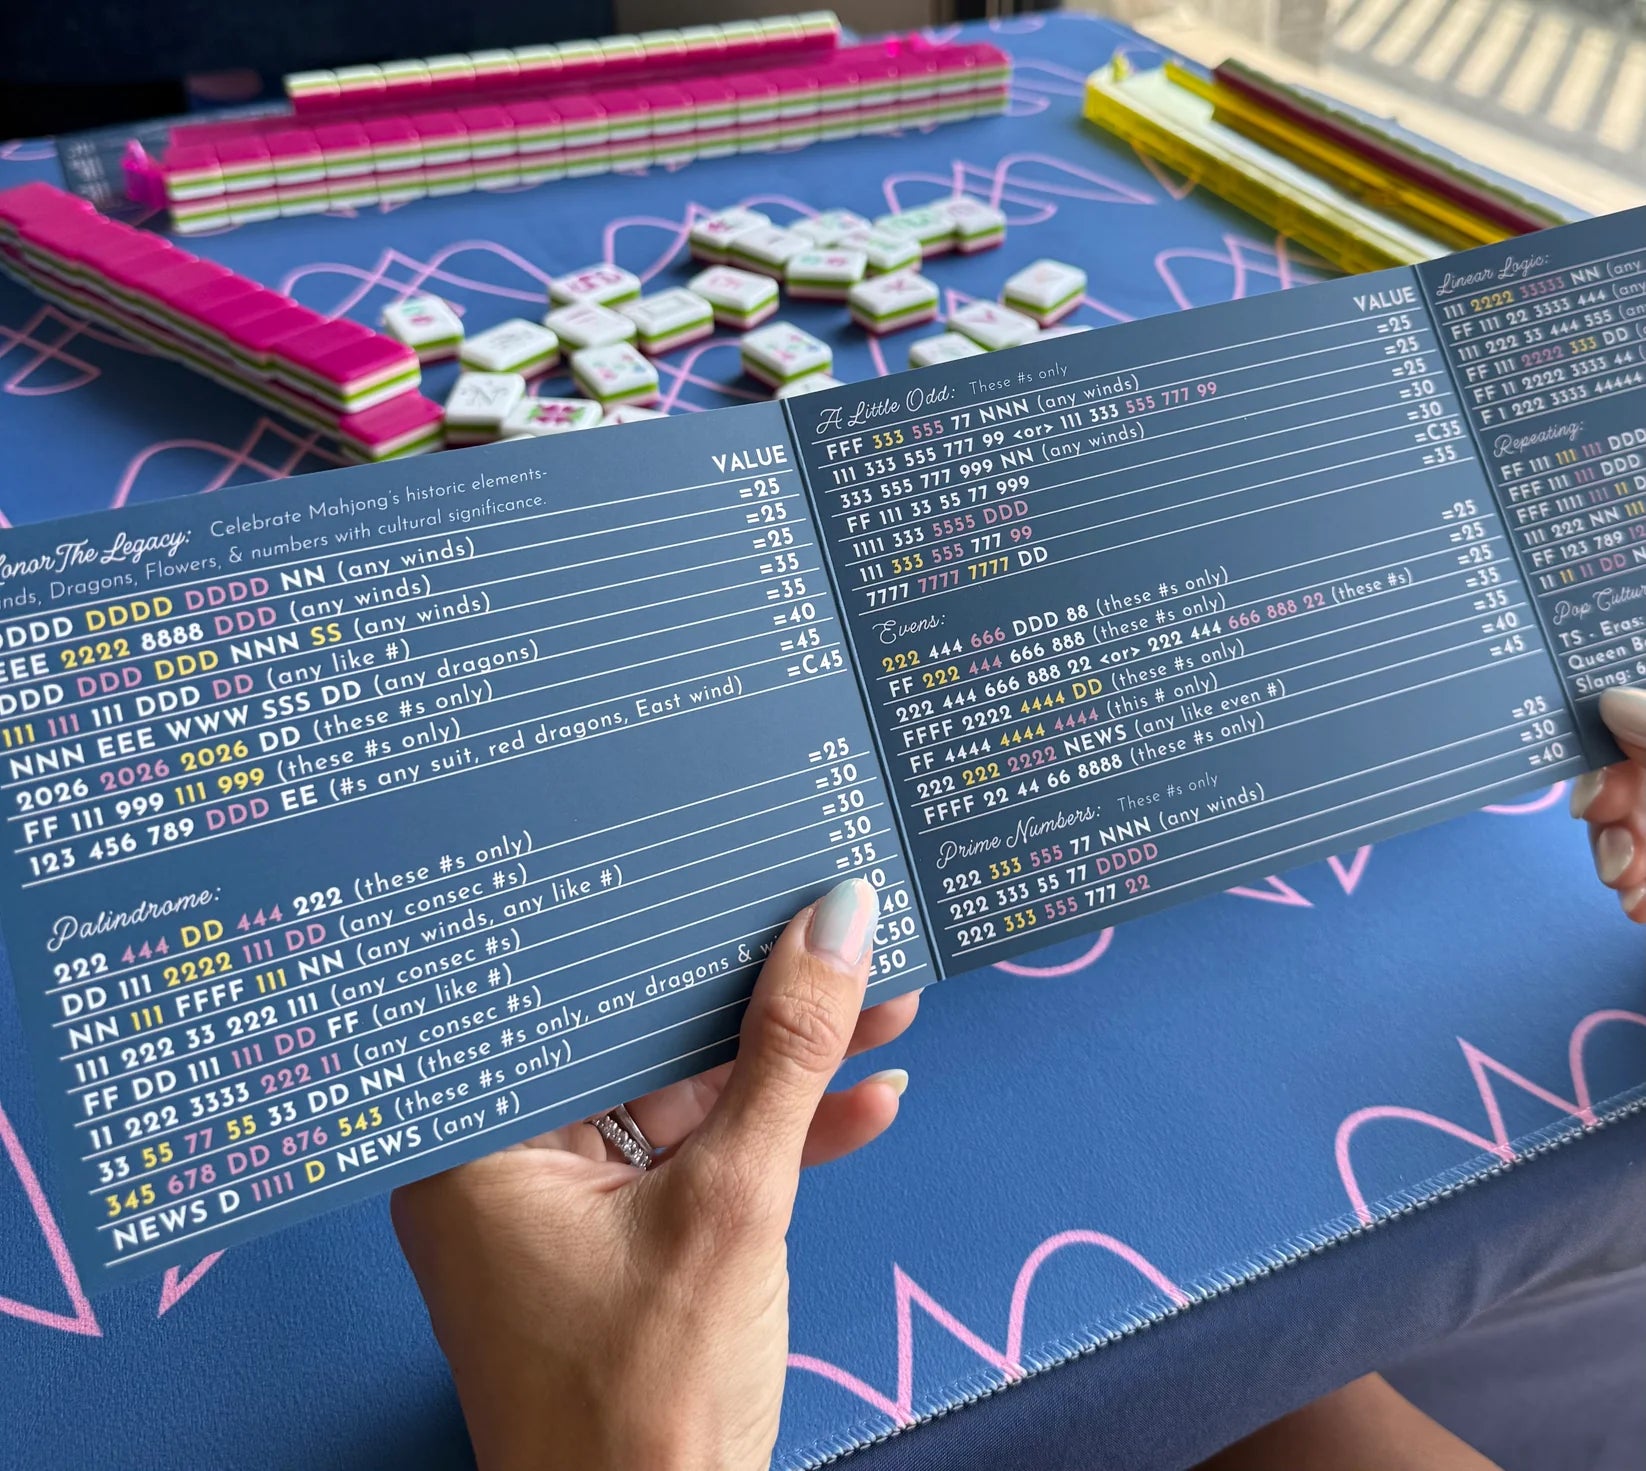 onor The Legacy: Celebrate Mahjong's historic elements-
nds, Dragons, Flowers, & numbers with cultural significance.
VALUE
DDDD DDDD DDDD NN (any winds) =25
EEE 2222 8888 DDD (any winds) =25
DDD DDD DDD NNN SS (any winds) =25
111 111 111 DDD DD (any like #) =35
NNN EEE WWW SSS DD (any dragons) =35
2026 2026 2026 DD (these #s only) =40
FF 111 999 111 999 (these #s only) =45
123 456 789 DDD EE (#s any suit, red dragons, East wind) =C45
Palindrome:
222 444 DD 444 222 (these #s only) =25
DD 111 2222 111 DD (any consec #s) =30
NN 111 FFFF 111 NN (any winds, any like #) =30
111 222 33 222 111 (any consec #s) =30
FF DD 111 111 DD FF (any like #) =35
11 222 3333 222 11 (any consec #s) 0
33 55 77 55 33 DD NN (these #s only, any dragons & w 40
345 678 DD 876 543 (these #s only) C50
NEWS D 1111 D NEWS (any #) =50
A Little Odd: These #s only
VALUE
FFF 333 555 77 NNN (any winds) =25
111 333 555 777 99 <or> 111 333 555 777 99 =25
333 555 777 999 NN (any winds) =25
FF 111 33 55 77 999 =30
1111 333 5555 DDD =30
111 333 555 777 99 =C35
7777 7777 7777 DD =35
Evens:
222 444 666 DDD 88 (these #s only) =25
FF 222 444 666 888 (these #s only) =25
222 444 666 888 22 <or> 222 444 666 888 22 (these #s) =25
FFFF 2222 4444 DD (these #s only) =35
FF 4444 4444 4444 (this # only) =35
222 222 2222 NEWS (any like even #) =40
FFFF 22 44 66 8888 (these #s only) =45
Prime Numbers: These #s only
222 333 555 77 NNN (any winds) =25
222 333 55 77 DDDD =30
222 333 555 777 22 =40
Linear Logic:
111 2222 33333 NN (any
FF 111 22 3333 444 (any
111 222 33 444 555 (any
FF 111 2222 333 DD (
FF 11 2222 3333 44 (
F 1 222 3333 44444
Repeating:
FF 111 111 111 DDD
FFF 111 111 DDD
FFF 1111 111 11 D
111 222 NN 111
FF 123 789
11 11 11 DD N
Pop Cultur
TS - Eras:
Queen B
Slang: 6